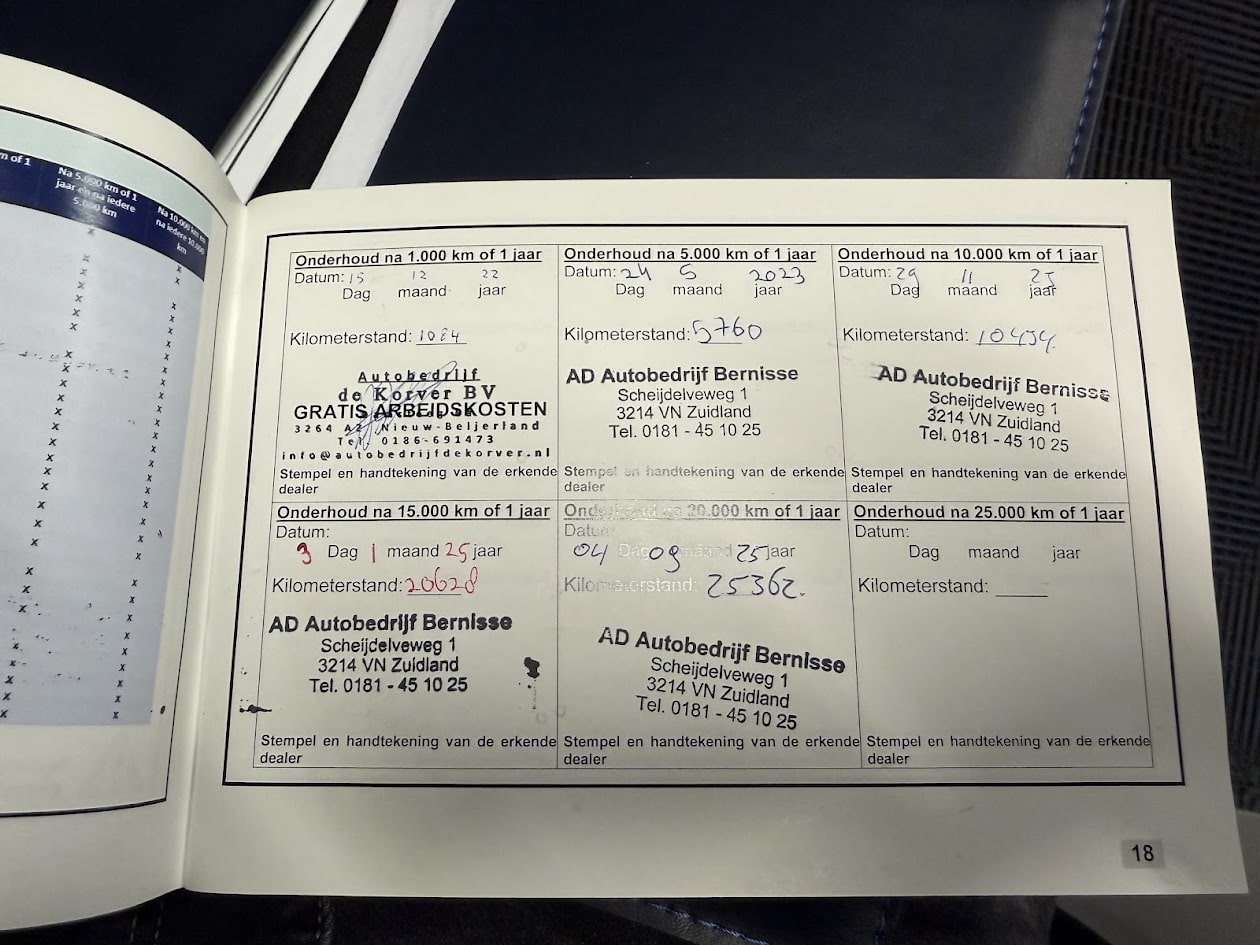 n of 1
Na 5.000 km of 1
jaar en na iedere
5.000 km
Na 10.000 km en
na iedere 10.000
km
Onderhoud na 1.000 km of 1 jaar
Datum: 15 12 22
Dag maand jaar
Kilometerstand: 1084
Autobedrijf
de Korver BV
GRATIS ARBEIDSKOSTEN
3264 Nieuw-Beijerland
Tel. 0186-691473
info@autobedrijfdekorver.nl
Stempel en handtekening van de erkende
dealer
Onderhoud na 5.000 km of 1 jaar
Datum: 24 5 2023
Dag maand jaar
Kilometerstand: 5760
AD Autobedrijf Bernisse
Scheijdelveweg 1
3214 VN Zuidland
Tel. 0181 - 45 10 25
Stempel en handtekening van de erkende
dealer
Onderhoud na 10.000 km of 1 jaar
Datum: 29 11
Dag maand jaar
Kilometerstand:
AD Autobedrijf Bernisse
Scheijdelveweg 1
3214 VN Zuidland
Tel. 0181 - 45 10 25
Stempel en handtekening van de erkende
dealer
Onderhoud na 15.000 km of 1 jaar
Datum:
3 Dag 1 maand 25 jaar
Kilometerstand: 20628
AD Autobedrijf Bernisse
Scheijdelveweg 1
3214 VN Zuidland
Tel. 0181 - 45 10 25
Stempel en handtekening van de erkende
dealer
Onderhoud na 20.000 km of 1 jaar
Datum:
04 Dag 09 maand 25 jaar
Kilometerstand: 25362.
AD Autobedrijf Bernisse
Scheijdelveweg 1
3214 VN Zuidland
Tel. 0181 - 45 10 25
Stempel en handtekening van de erkende
dealer
Onderhoud na 25.000 km of 1 jaar
Datum:
Dag maand jaar
Kilometerstand:
Stempel en handtekening van de erkende
dealer
18